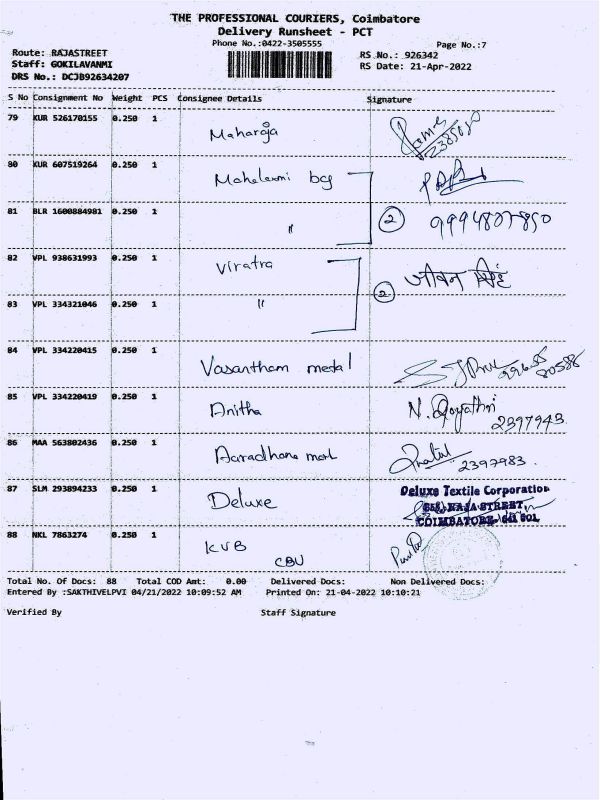 THE PROFESSIONAL COURIERS, Coimbatore
Delivery Runsheet - PCT
Phone No.:0422-3505555
Page No.:7
Route: RAJASTREET
RS No.: 926342
Staff: GOKILAVANMI
RS Date: 21-Apr-2022
DRS No.: DCJB92634207
S No Consignment No Weight PCS Consignee Details Signature
79 KUR 526170155 0.250 1 Maharaja
80 KUR 607519264 0.250 1 Mahelaxmi bag
81 BLR 1600884981 0.250 1 " 2
82 VPL 938631993 0.250 1 Viratra जीवन सिंह
83 VPL 334321046 0.250 1 " 2
84 VPL 334220415 0.250 1 Vasantham metal
85 VPL 334220419 0.250 1 Anitha N. Gayathri
2397943
86 MAA 563802436 0.250 1 Aaradhana
2397983.
87 SLM 293894233 0.250 1 Deluxe Deluxe Textile Corporation
RAJA STREET,
COIMBATORE - 641 001.
88 NKL 7863274 0.250 1 KVB
CBU
Total No. Of Docs: 88 Total COD Amt: 0.00 Delivered Docs: Non Delivered Docs:
Entered By :SAKTHIVELPVI 04/21/2022 10:09:52 AM Printed On: 21-04-2022 10:10:21
Verified By Staff Signature